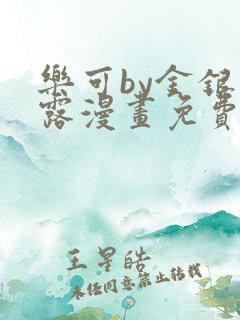 樂可by金銀
露漫畫免費
王星皓
未经同意禁止转载